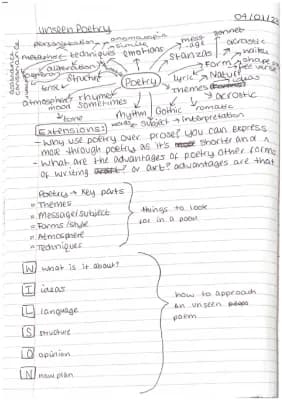 04/01/2
Unseen Poetry
personification
onomatopoeia
simile
metaphor
techniques
emotions
mess-age
sonnet
acrostic
stanzas
Form
shape
free verse
alliteration
assonance
consonance
structure
Poetry
lyric
Nature
ideas
Themes (Forms)
acrostic
atmosphere
mood
tone
rhyme sometimes
rhythm
Gothic
romantic
words
subject
interpretation
Extensions:
- Why use poetry over prose? you can express
more through poetry as it's shorter and
- What are the advantages of poetry other forms
of writing or art? advantages are that
Poetry → Key parts
= Themes
= Message/subject
= Forms/style
= Atmosphere
= Techniques
things to look
for in a poem
W what is it about?
I ideas
L language
S structure
O opinion
N now plan
how to approach
an unseen
poem